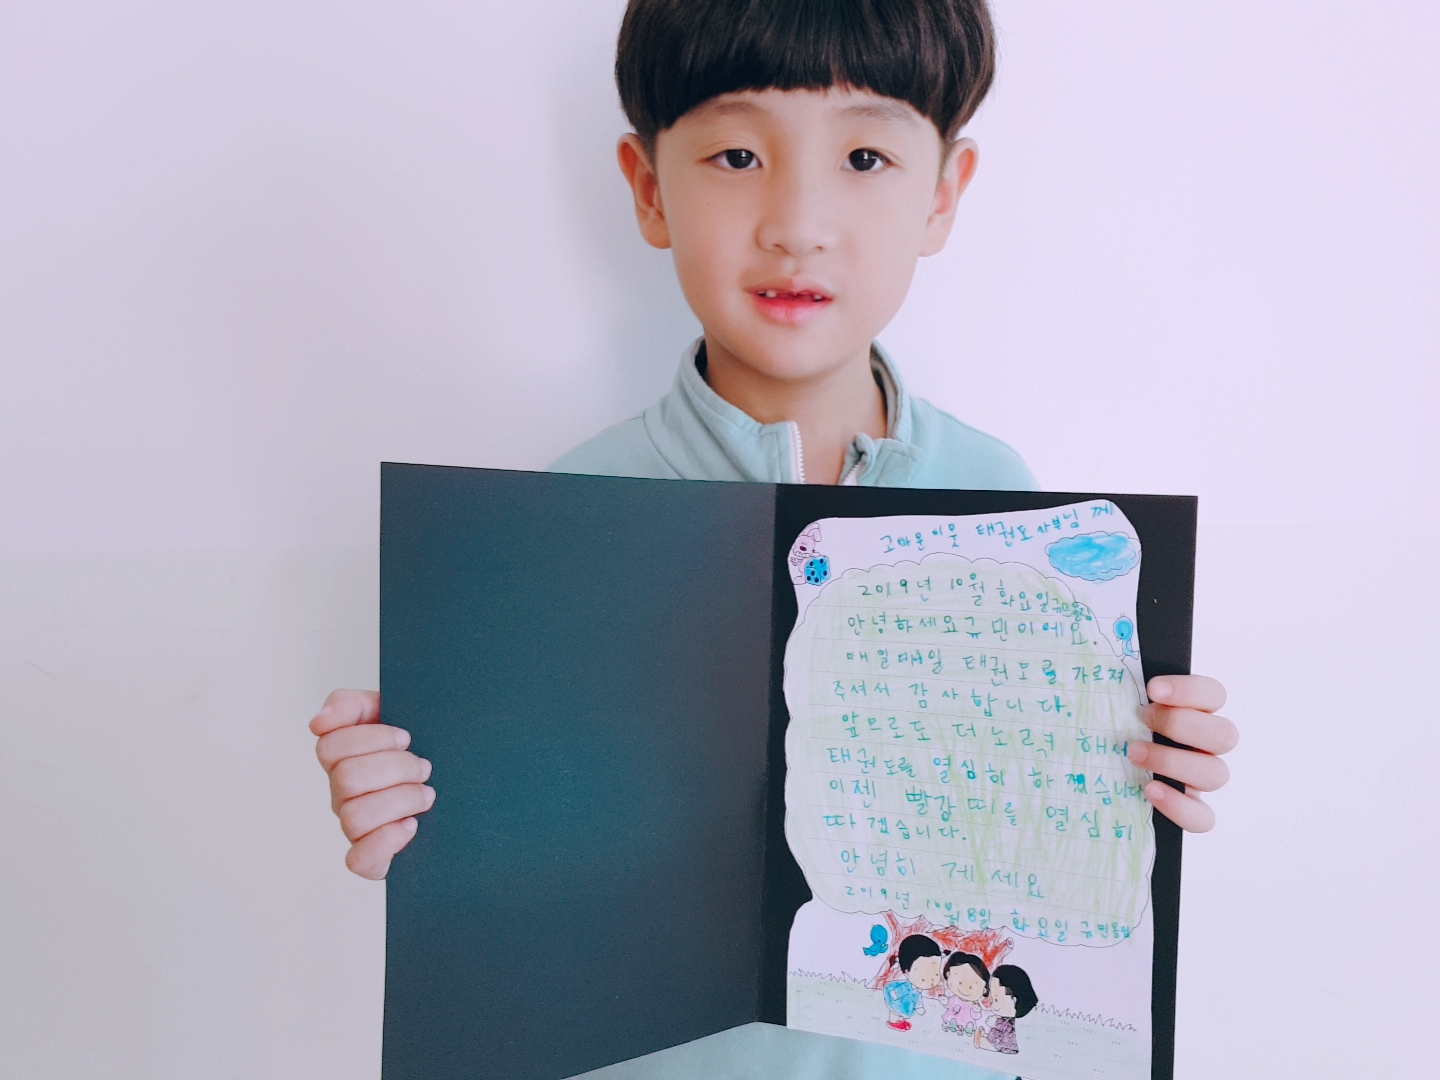 고마운 이웃 태권도 사부님 께
2019년 10월 화요일 규민올림
안녕하세요 규민이에요.
매일매일 태권도를 가르쳐
주셔서 감사합니다.
앞므로도 더 노력 해서
태권도를 열심히 하겠습니다.
이젠 빨강띠를 열심히
따겠습니다.
안녕히 게세요
2019년 10월 8일 화요일 규민올림